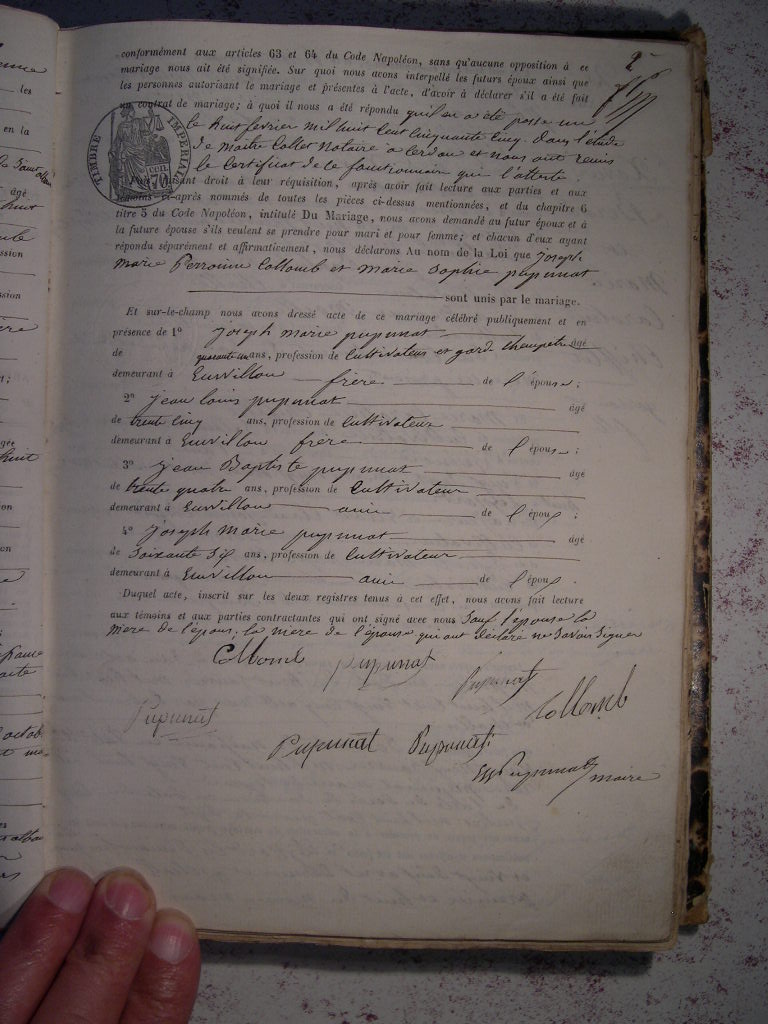 conformément aux articles 63 et 64 du Code Napoléon, sans qu'aucune opposition à ce
mariage nous ait été signifiée. Sur quoi nous avons interpellé les futurs époux ainsi que
les personnes autorisant le mariage et présentes à l'acte, d'avoir à déclarer s'il a été fait
un contrat de mariage; à quoi il nous a été répondu qu'il en a été passé un
le huit fevrier mil huit cent Cinquante Cinq. Dans l'étude
de maitre Collet Notaire a Cerdon et nous ont remis
le Certificat de le fonctionnaire qui l'atteste.
TIMBRE IMPERIAL
70
Puis faisant droit à leur réquisition, après avoir fait lecture aux parties et aux
témoins ci-après nommés de toutes les pièces ci-dessus mentionnées, et du chapitre 6
titre 5 du Code Napoléon, intitulé Du Mariage, nous avons demandé au futur époux et à
la future épouse s'ils veulent se prendre pour mari et pour femme; et chacun d'eux ayant
répondu séparément et affirmativement, nous déclarons Au nom de la Loi que joseph
marie Perronne Collomb et marie Sophie pupunat
sont unis par le mariage.
Et sur-le-champ nous avons dressé acte de ce mariage célébré publiquement et en
présence de 1° joseph marie pupunat
de quarante un ans, profession de Cultivateur et gard Champetre âgé
demeurant à frère de l'épouse;
2° jean louis pupunat âgé
de trente Cinq ans, profession de Cultivateur
demeurant à frère de l'épouse;
3° jean Baptiste pupunat âgé
de trente quatre ans, profession de Cultivateur
demeurant à ami de l'époux;
4° joseph marie pupunat âgé
de Soixante Six ans, profession de Cultivateur
demeurant à ami de l'époux.
Duquel acte, inscrit sur les deux registres tenus à cet effet, nous avons fait lecture
aux témoins et aux parties contractantes qui ont signé avec nous Sauf l'épouse la
mere de l'époux; la mere de l'épouse qui ont déclaré ne Savoir Signer
Collomb pupunat
pupunat
Collomb
Pupunat
Pupunat Pupunat
Pupunat maire